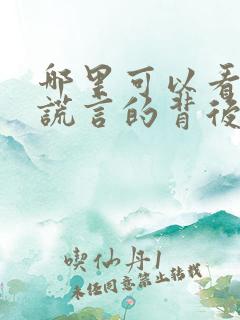 哪里可以看
谎言的背後
喫仙丹1
未经同意禁止转载